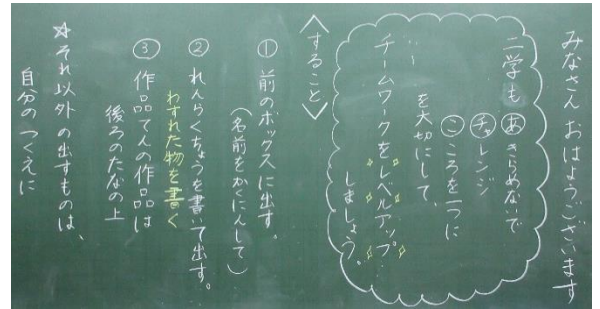 みなさん おはようございます
二学も あきらめないで
チャレンジ
こころを一つに
を大切にして、
チームワークをレベルアップ
しましょう。
＜すること＞
① 前のボックスに出す。
（名前をかくにんして）
② れんらくちょうを書いて出す。
わすれた物を書く
③ 作品てんの作品は
後ろのたなの上
☆それ以外の出すものは、
自分のつくえに